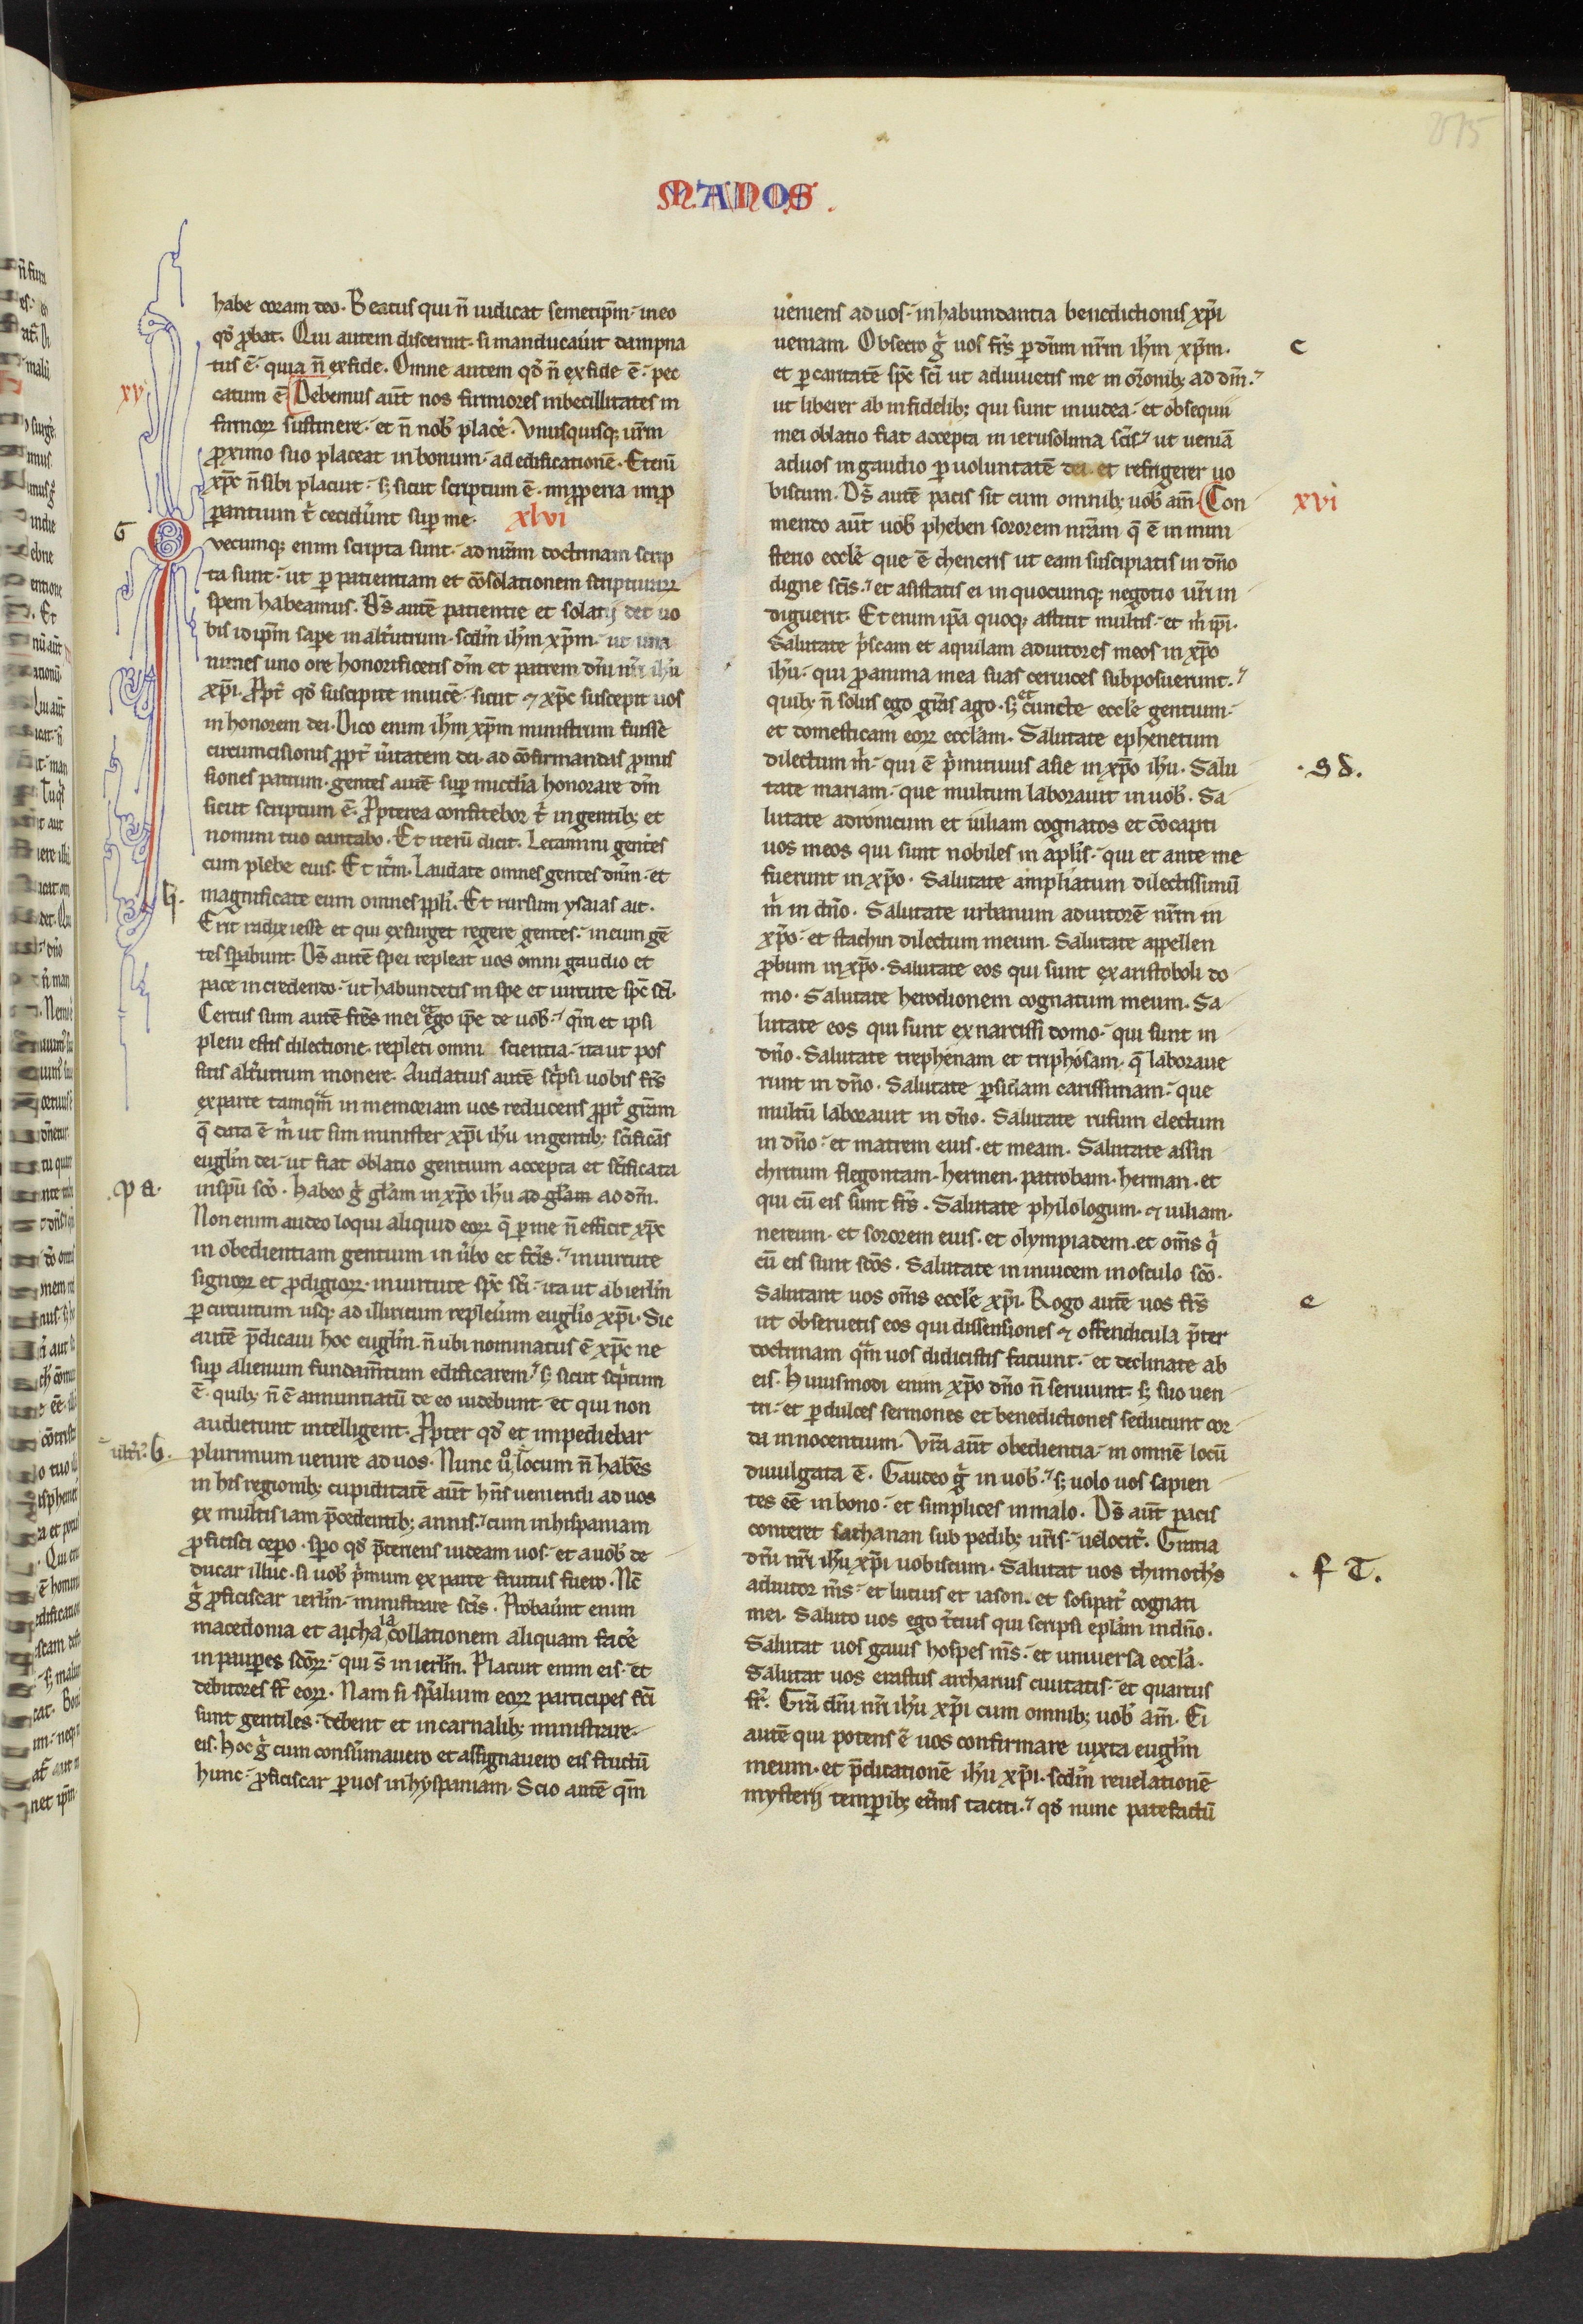 MANOS.
habe coram deo. Beatus qui n̄ iudicat semetip̄m. in eo
qd̕ ꝓbat. Qui autem discernit. si manducaūit dampna
tus ē. quia n̄ ex fide. Omne autem qd̕ n̄ ex fide ē. pec
xv
catum ē Debemus aūt nos firmiores inbecillitates in
firmoꝝ sustinere. et n̄ nob̕ placē. Vnusquisq; ur̄m
ꝓximo suo placeat in bonum. ad edificationē. Eteni̅
xp̄c n̄ sibi placuit. sꝫ sicut scriptum ē. inꝓperia inꝓ
ꝑantium t̕ ceciderūt suꝑ me. xlvi
G
Quecumq; enim scripta sunt. ad nr̄am doctrinam scrip
ta sunt. ut ꝑ patientiam et cōsolationem scripturaꝝ
spem habeamus. Ds̄ autē patientie et solatij det uo
bis id ip̄m sapere in alt̕utrum. scd̄m ih̄m xp̄m. ut una
nimes uno ore honorificetis dm̄ et patrem dn̄i nr̄i ih̄u
xp̄i. Ꝓpt̕ qd̕ suscipite inuicē. sicut ⁊ xp̄c suscepit uos
in honorem dei. Dico enim ih̄m xp̄m ministrum fuisse
circumcisionis ꝓpt̕ ūitatem dei. ad cōfirmandas ꝓmis
siones patrum. gentes autē suꝑ mis̄cdia honorare dm̄
sicut scriptum ē. Ꝓpterea confitebor t̕ in gentib; et
nomini tuo cantabo. Et iterū dicit. Letamini gentes
cum plebe eius. Et it̄m. Laudate omnes gentes dn̄m. et
magnificate eum omnes pp̄li. Et rursum ysaias ait.
Erit radix iesse et qui exsurget regere gentes. in eum gē
tes sꝑabunt. Ds̄ autē spei repleat uos omni gaudio et
pace in credendo. ut habundetis in spe et uirtute sp̄c sc̄i.
Certus sum autē fr̄es mei et ego ip̄e de uob̕. qm̄ et ipsi
pleni estis dilectione. repleti omni scientia. ita ut pos
sitis alt̕utrum monere. Audatius autē sc̕psi uobis fr̄s
ex parte tamqᵃm in memoriam uos reducens ꝓpt̕ gr̄am
q̄ data ē m̕ ut sim minister xp̄i ih̄u in gentib; sc̄ificās
euglīm dei. ut fiat oblatio gentium accepta et sc̄ificata
p a.
in sp̄u sc̄o. Habeo g̕ gl̄am in xp̄o ih̄u ad gl̄am ad dm̄.
Non enim audeo loqui aliquid eoꝝ q̄ ꝑ me n̄ efficit xp̄c
in obedientiam gentium in ūbo et fc̄is. in uirtute
signoꝝ et ꝓdigioꝝ. in uirtute sp̄c sc̄i. ita ut ab ierl̄m
ꝑ circuitum usq; ad illiricum repleūim euglīo xp̄i. Sic
autē p̄dicaui hoc euglīm. n̄ ubi nominatus ē xp̄c ne
suꝑ alienum fundam̄tum edificarem. sꝫ sicut sc̕ptum
ē. quib; n̄ ē annuntiatū de eo uidebunt. et qui non
audierunt intelligent. Ꝓpter qd̕ et impediebar
plurimum uenire ad uos. Nunc uº ult̕i locum n̄ habēs
in his regionib; cupiditatē aūt hn̄s ueniendi ad uos
ex multis iam p̄cedentib; annis. cum in hispaniam
ꝓficisci cepero. sꝑo qd̕ p̄teriens uideam uos. et a uob̕ de
ducar illuc. si uob̕ p̕mum ex parte fruitus fuero. Nc̄
g̕ ꝓficiscar ierl̄m. ministrare sc̄is. Probaūnt enim
macedonia et aicha ia collationem aliquam facē
in pauꝑes sc̄oꝝ. qui s̄ in ierl̄m. Placuit enim eis. et
debitores st̄ eoꝝ. Nam si spūalium eoꝝ participes fc̄i
sunt gentiles. debent et in carnalib; ministrare.
eis. Hoc g̕ cum consūmauero et assignauero eis fructū
hunc. ꝓficiscar ꝑ uos in hyspaniam. Scio autē qm̄
ueniens ad uos. in habundantia benedictionis xp̄i
c
ueniam. Obsecro g̕ uos fr̄s ꝑ dn̄m nr̄m ih̄m xp̄m.
et ꝑ caritatē sp̄c sc̄i ut adiuuetis me in or̄onib; ad dm̄.
ut liberer ab infidelib; qui sunt in iudea. et obsequii
mei oblatio fiat accepta in ierusolima sc̄is. ut ueniā
ad uos in gaudio ꝑ uoluntatē dei. et refrigerer uo
xvi
biscum. Ds̄ autē pacis sit cum omnib; uob̕ am̄. Con
mendo aūt uob̕ pheben sororem nr̄am q̄ ē in mini
sterio eccl̄e que ē chencris ut eam suscipiatis in dn̄o
digne sc̄is. et asistatis ei in quocumq; negotio ur̄i in
diguerit. Etenim ip̄a quoq; astitit multis. et m̕ ip̄i.
Salutate p̕scam et aquilam adiutores meos in xp̄o
ih̄u. qui ꝓ anima mea suas ceruices subposuerunt.
quib; n̄ solus ego gr̄as ago. sꝫ et cuncte eccl̄e gentium.
et domesticam eoꝝ eccl̄am. Salutate ephenetum
s d.
dilectum m̕. qui ē p̕mitiuus asie in xp̄o ih̄u. Salu
tate mariam. que multum laborauit in uob̕. Sa
lutate adronicum et iuliam cognatos et cōcapti
uos meos qui sunt nobiles in apl̄is. qui et ante me
fuerunt in xp̄o. Salutate ampliatum dilectissimū
m̕ in dn̄o. Salutate urbanum adiutorē nr̄m in
xp̄o. et stachin dilectum meum. Salutate appellen
ꝓbum in xp̄o. Salutate eos qui sunt ex aristoboli do
mo. Salutate herodionem cognatum meum. Sa
lutate eos qui sunt ex narcissi domo. qui sunt in
dn̄o. Salutate trephenam et triphosam. q̄ laboraue
runt in dn̄o. Salutate ꝑsidam carissimam. que
multū laborauit in dn̄o. Salutate rufum electum
in dn̄o. et matrem eius. et meam. Salutate assin
chritum flegontam. hermen. patrobam. herman. et
qui cū eis sunt fr̄s. Salutate philologum. ⁊ iuliam.
nereum. et sororem eius. et olympiadem. et om̄s q̕
cū eis sunt sc̄os. Salutate in inuicem in osculo sc̄o.
e
Salutant uos om̄s eccl̄e xp̄i. Rogo autē uos fr̄s
ut obseruetis eos qui dissensiones ⁊ offendicula p̄ter
doctrinam qᵃm uos didicistis faciunt. et declinate ab
eis. Huiusmodi enim xp̄o dn̄o n̄ seruiunt. sꝫ suo uen
tri. et ꝑ dulces sermones et benedictiones seducunt cor
da innocentium. Vr̄a aūt obedientia. in omnē locū
diuulgata ē. Gaudeo g̕ in uob̕. sꝫ uolo uos sapien
tes eē in bono. et simplices in malo. Ds̄ aūt pacis
conteret sathanan sub pedib; ur̄is. uelocit̕. Gratia
f T.
dn̄i nr̄i ih̄u xp̄i uobiscum. Salutat uos thimoth̕s
adiutor m̄s. et lucius et iason. et sosipat̕ cognati
mei. Saluto uos ego t̕cius qui scripsi epl̄am in dn̄o.
Salutat uos gaius hospes m̄s. et uniuersa eccl̄a.
Salutat uos erastus archarius ciuitatis. et quartus
fr̄. Gr̄a dn̄i nr̄i ih̄u xp̄i cum omnib; uob̕ am̄. Ei
autē qui potens ē uos confirmare iuxta euglīm
meum. et p̄dicationē ih̄u xp̄i. scd̄m reuelationē
mysterij temꝑib; et̕nis taciti. qd̕ nunc patefactū